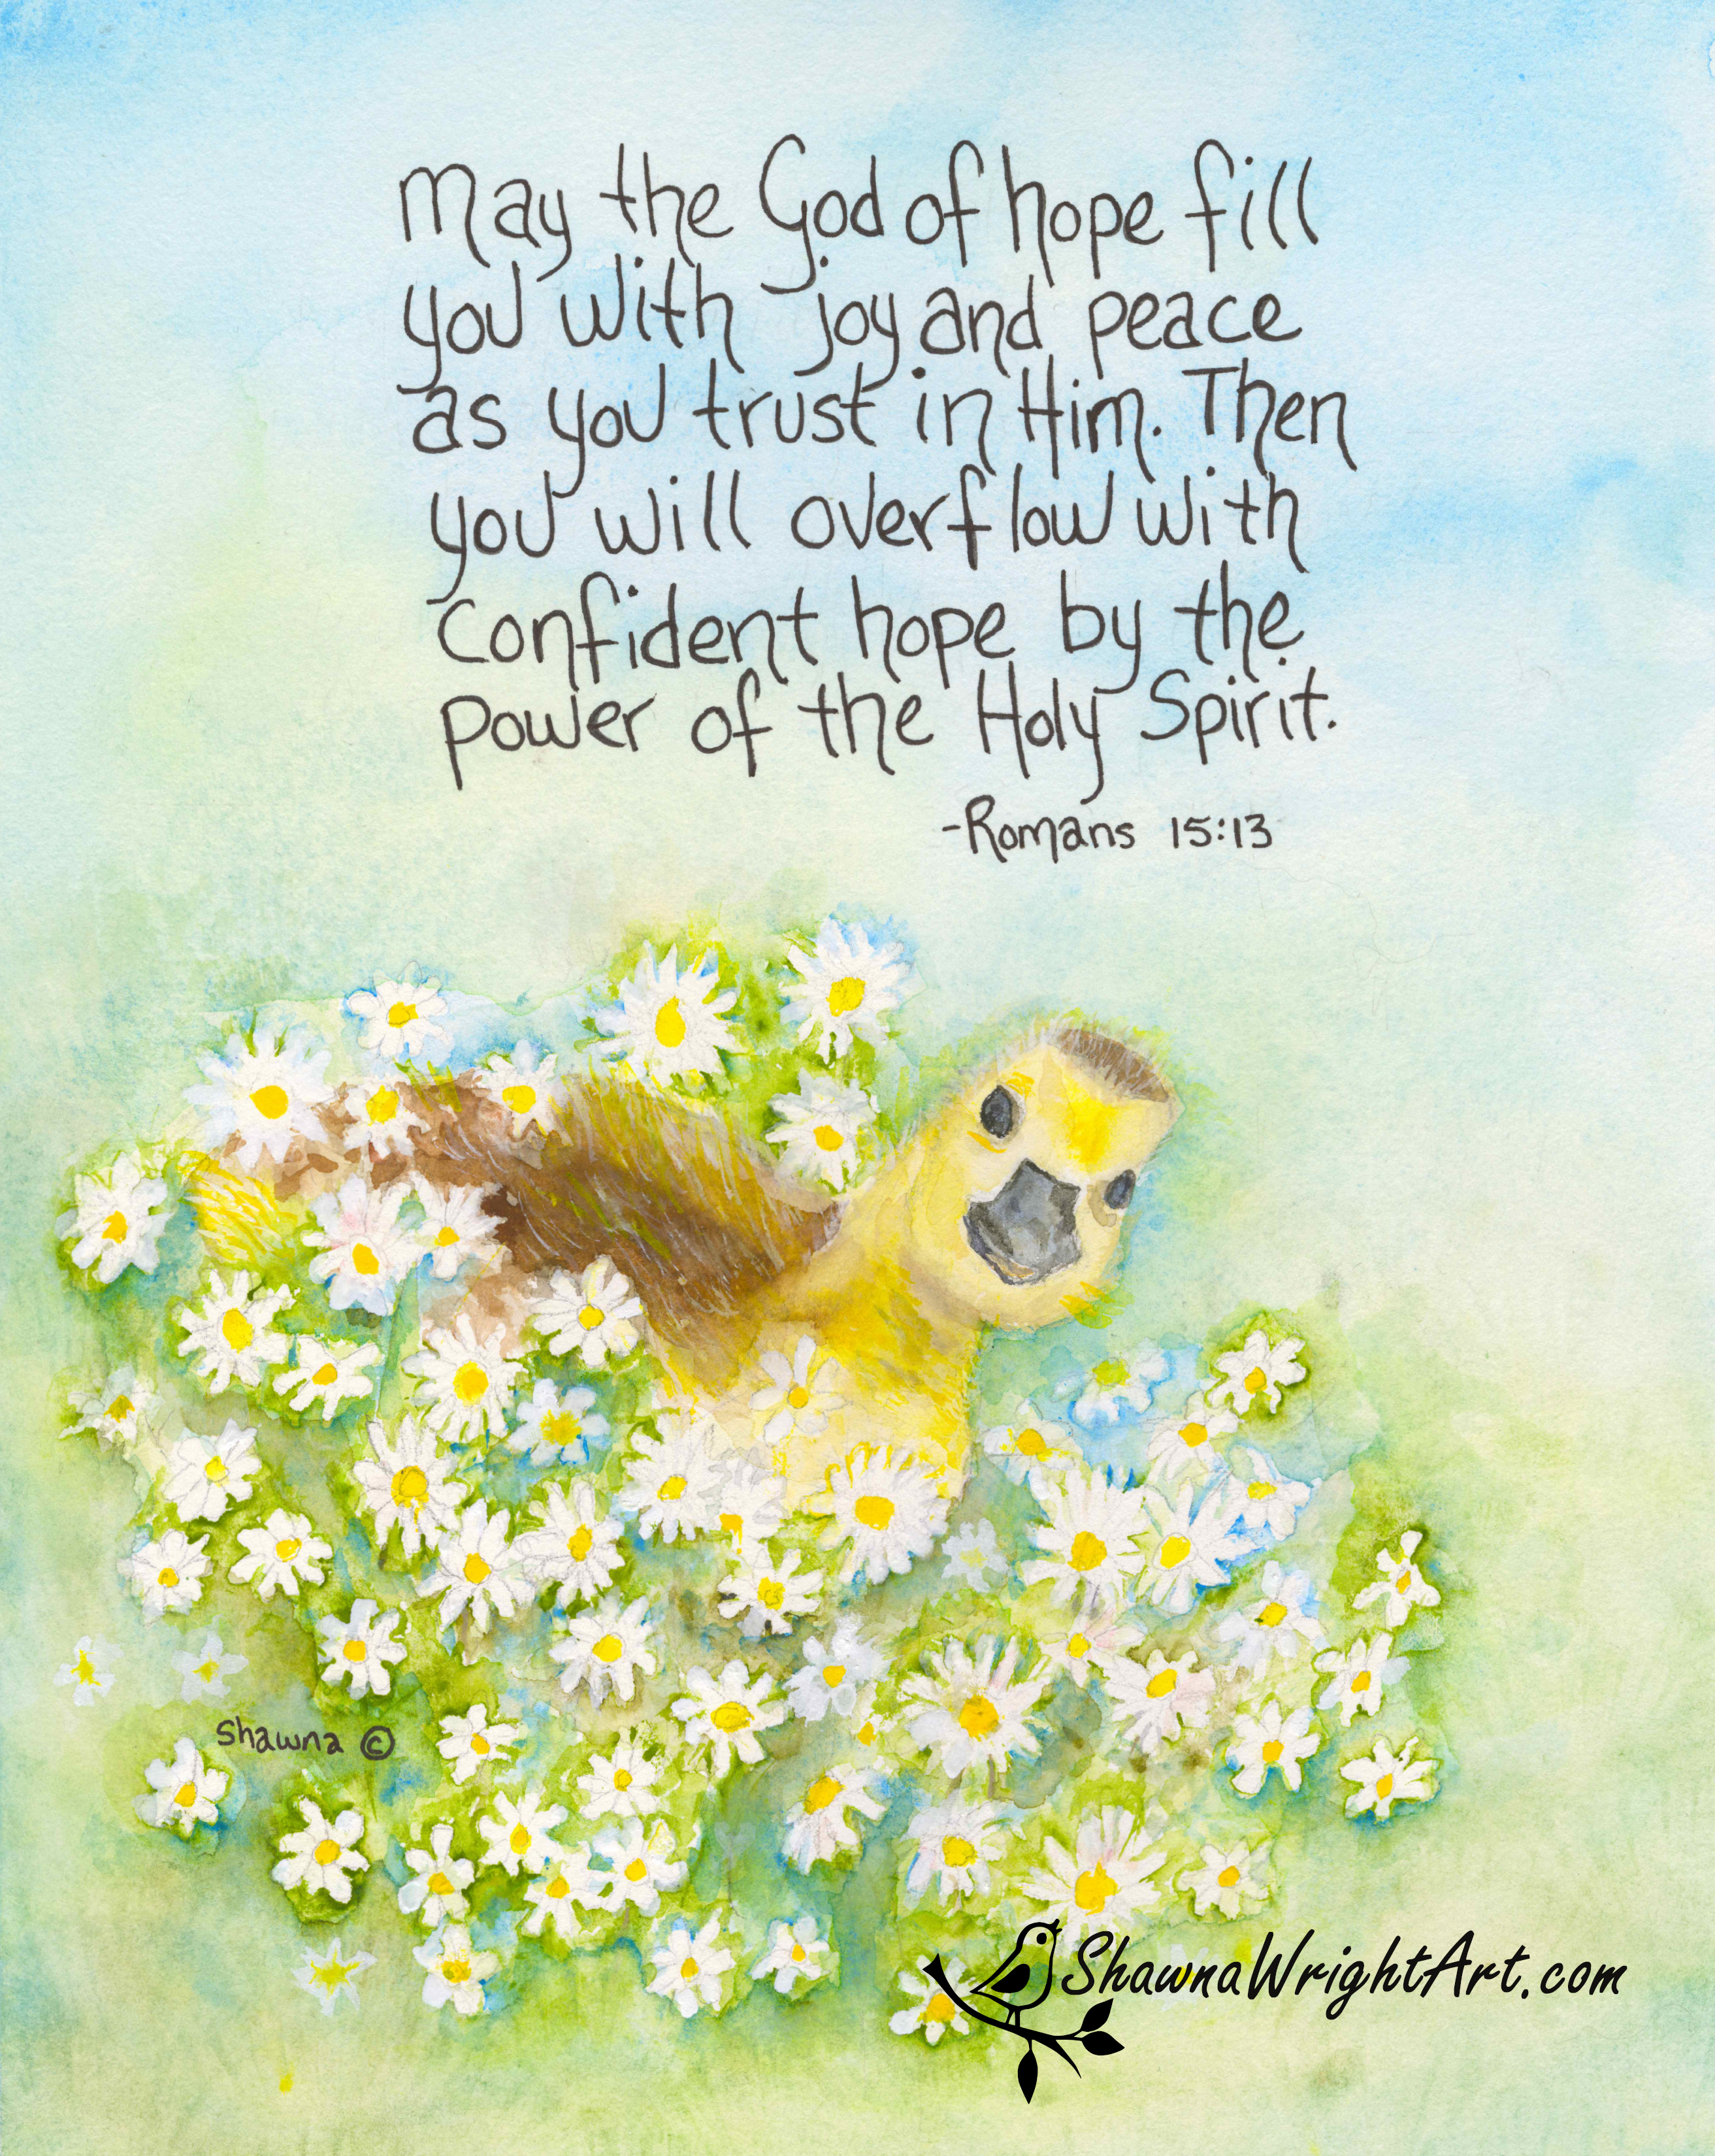 May the God of hope fill
you with joy and peace
as you trust in Him. Then
you will overflow with
confident hope by the
power of the Holy Spirit.
-Romans 15:13
Shawna ©
ShawnaWrightArt.com